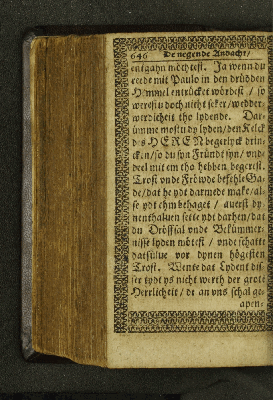 646 De negende Andacht/
entgahn möchtest. Ja wenn du
rede mit Paulo in den drüdden
Hemmel entrücket wördest / so
werestu doch nicht seker / wedder-
werdicheit tho lydende. Dar-
ümme mostu dy lyden / den Kelck
des HEREN begerlyck drin-
cken / so du syn Fründt syn / vnde
deel mit em tho hebben begerest.
Trost vnde Fröwde befehle Ga-
de / dat he ydt darmede make / al-
se ydt ehm behaget / auerst dy-
nenthaluen sette ydt darhen / dat
du Dröffsal vnde Bekümmer-
nisse lyden mötest / vnde schatte
datsülue vor dynen högesten
Trost. Wente dat Lydent dis-
ser tydt ys nicht werth der grote
Herrlicheit / de an vns schal ge-
apen-